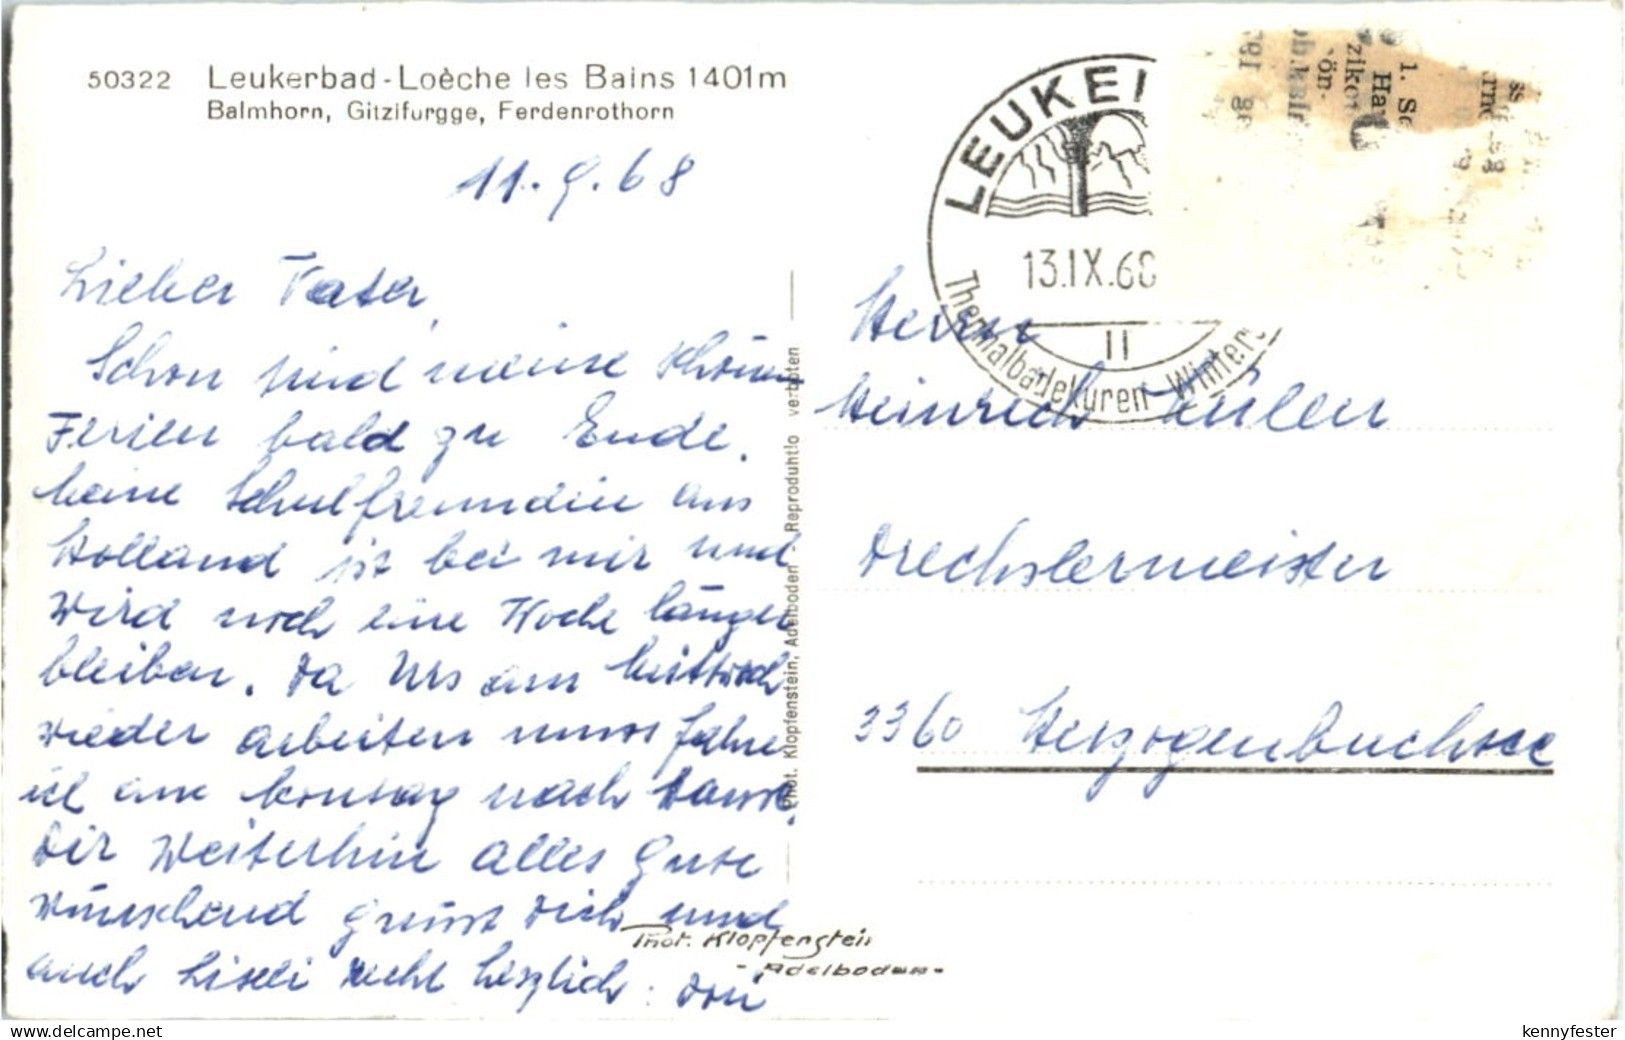 50322 Leukerbad - Loèche les Bains 1401m
Balmhorn, Gitzifurgge, Ferdenrothorn
11. 9. 68
Lieber Vater,
Schon sind meine schönen
Ferien bald zu Ende.
Meine Schulfreundin aus
Holland ist bei mir und
wird noch eine Woche länger
bleiben. Da Urs am Mittwoch
wieder arbeiten muss fahre
ich am Montag nach Hause.
Dir weiterhin alles Gute
wünschend grüsst Dich und
auch Liseli recht herzlich. Dori
Phot. Klopfenstein, Adelboden - Reproduhtio verboten
Phot. Klopfenstein
- Adelboden -
LEUKE
13.IX.68
II
Thermalbadekuren Winters
Herrn
Heinrich
Drechslermeister
3360 Herzogenbuchsee
1. Se
Ha
ziker
kön-
kennyfester